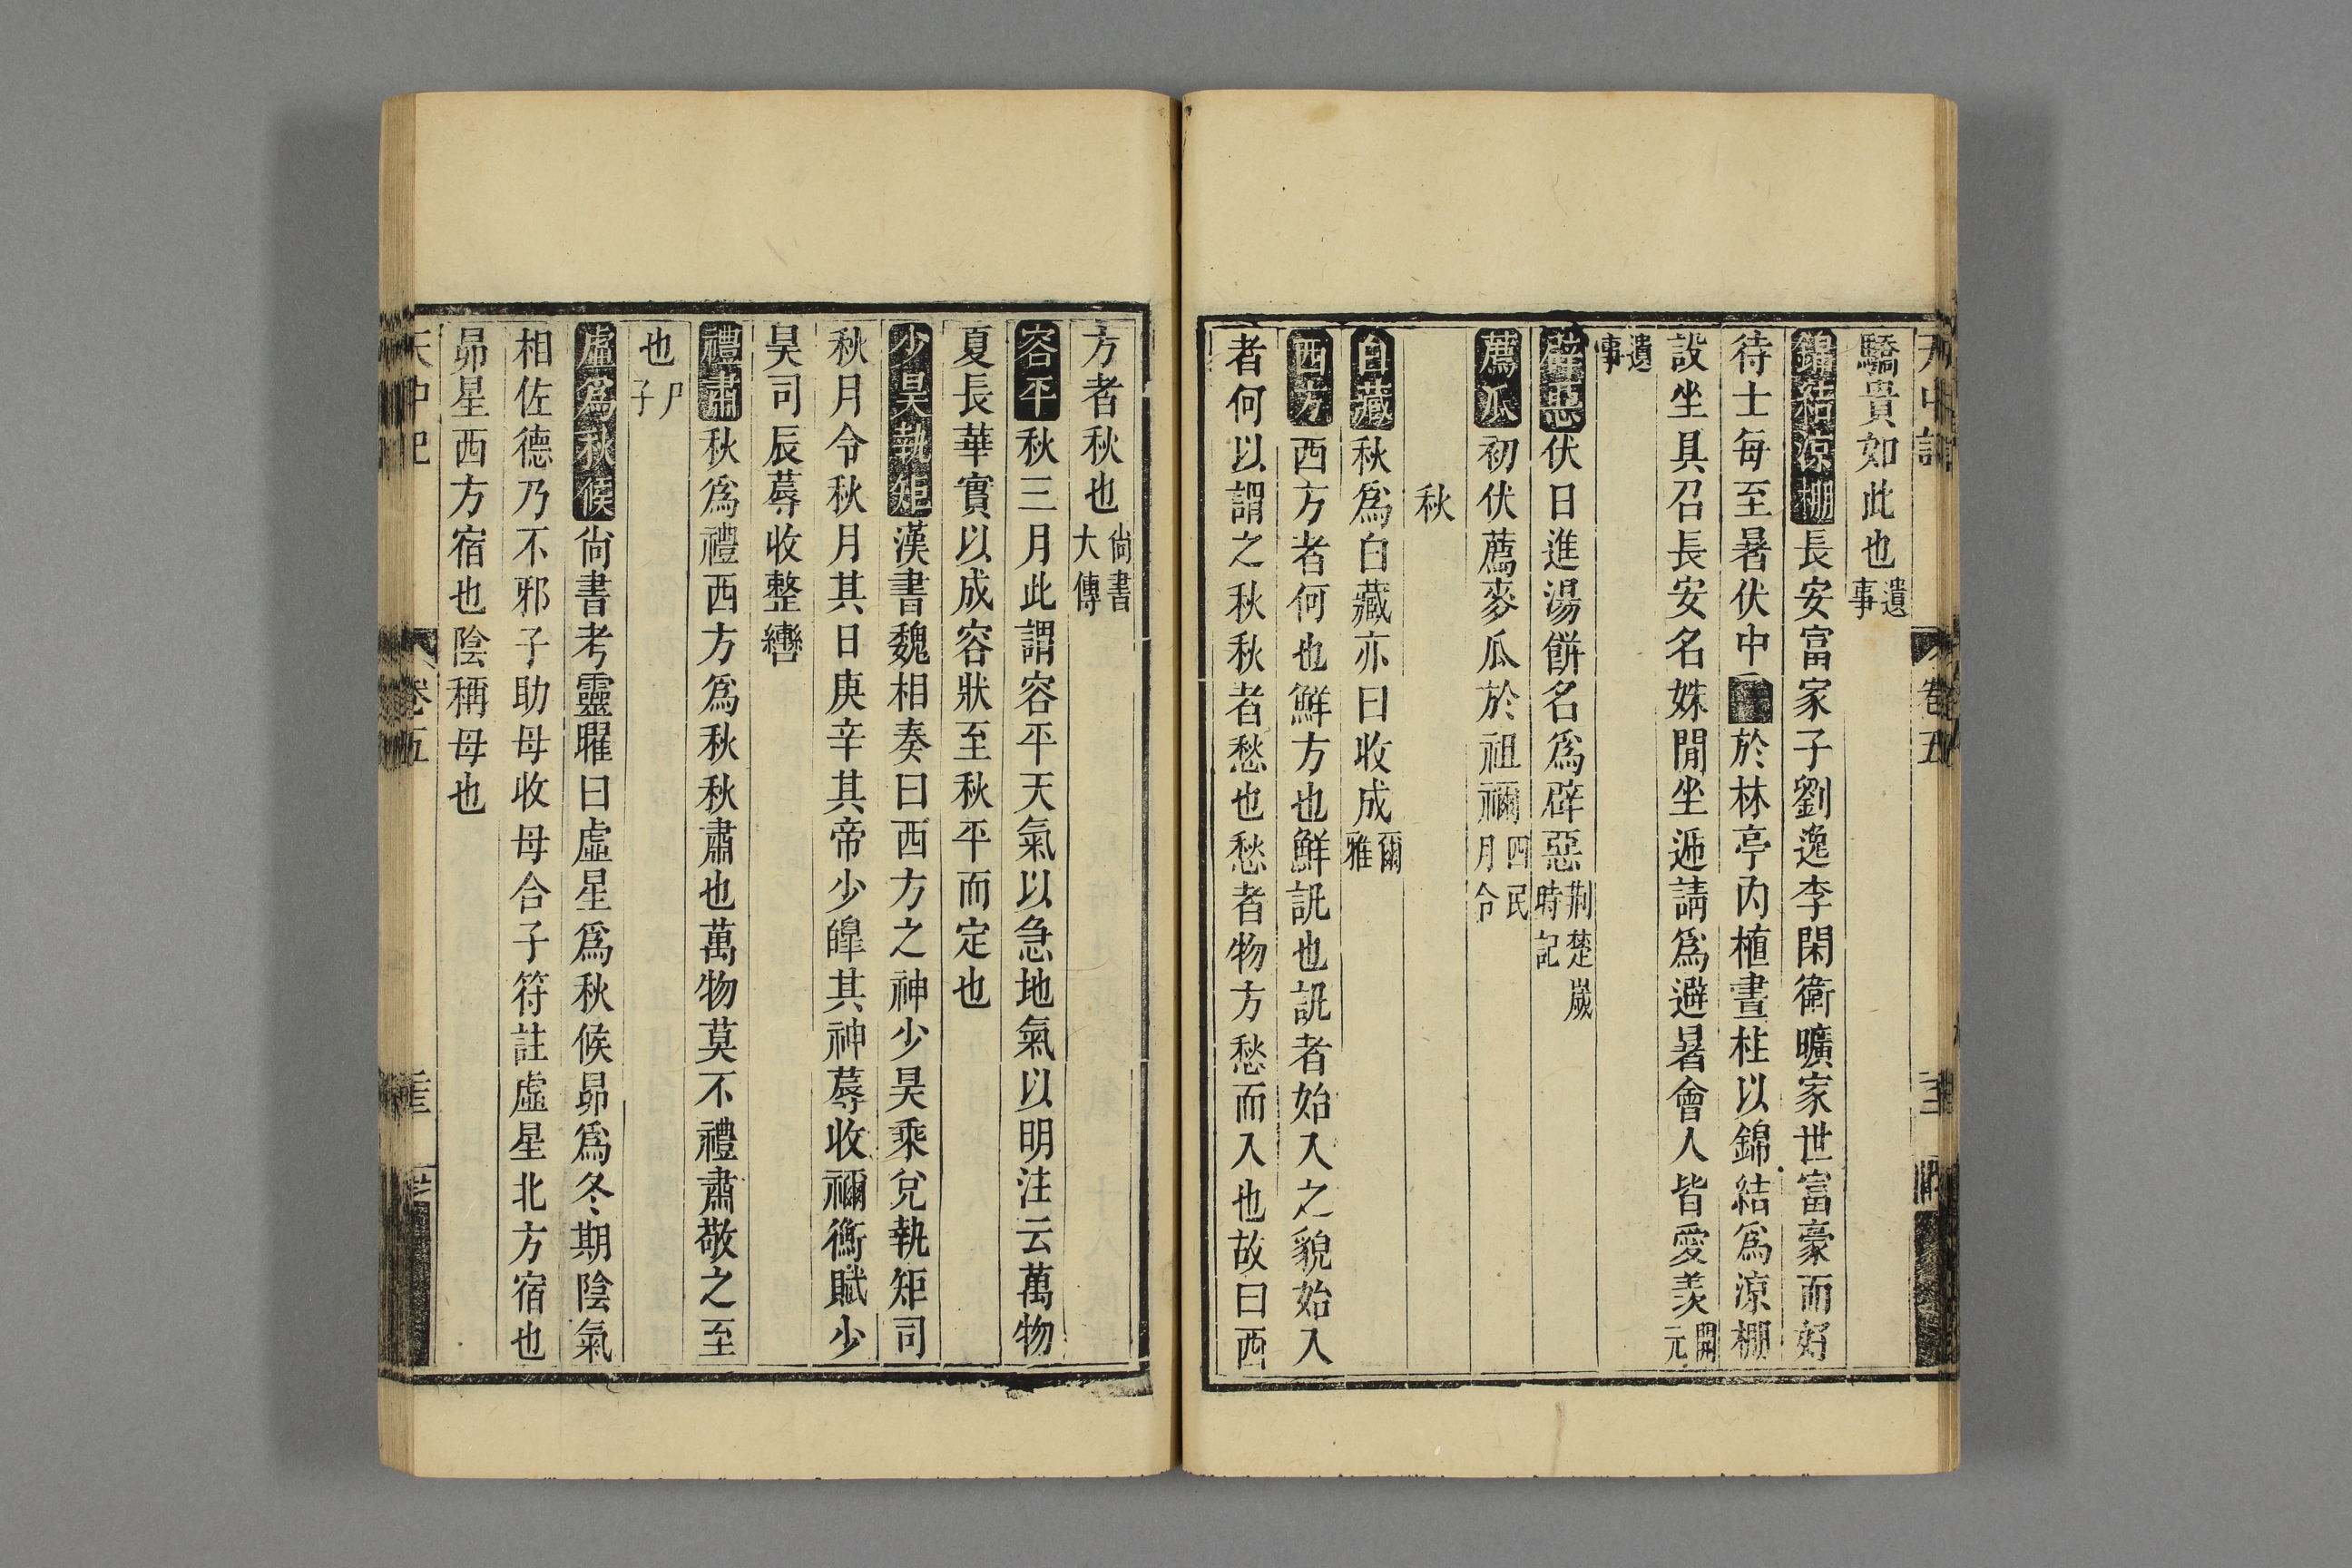 驕貴如此也遺事
錦結涼棚長安富家子劉逸李閑衛曠家世富豪而好
待士每至暑伏中於林亭內植畫柱以錦結為涼棚
設坐具召長安名姝閒坐遞請為避暑會人皆愛羨開元
遺事
辟惡伏日進湯餅名為辟惡荆楚歲時記
薦瓜初伏薦麥瓜於祖禰四民月令
秋
白藏秋為白藏亦曰收成爾雅
西方西方者何也鮮方也鮮訊也訊者始入之貌始入
者何以謂之秋秋者愁也愁者物方愁而入也故曰西
方者秋也尚書大傳
容平秋三月此謂容平天氣以急地氣以明注云萬物
夏長華實以成容狀至秋平而定也
少昊執矩漢書魏相奏曰西方之神少昊乘兌執矩司
秋月令秋月其日庚辛其帝少皞其神蓐收禰衡賦少
昊司辰蓐收整轡
禮肅秋為禮西方為秋秋肅也萬物莫不禮肅敬之至
也尸子
虛為秋候尚書考靈曜曰虛星為秋候昴為冬期陰氣
相佐德乃不邪子助母收母合子符註虛星北方宿也
昴星西方宿也陰稱母也
天中記
卷五